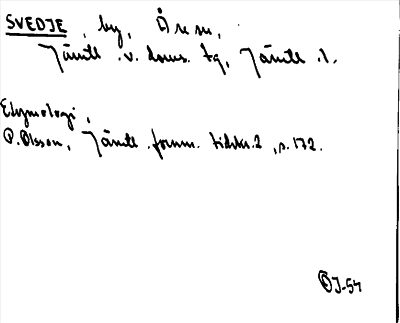 SVEDJE, by, Åre sn,
Jämtl. v. doms. tg, Jämtl. l.
Etymologi,
P. Olsson, Jämtl. fornm. tidskr. 2, s. 172.
J-54